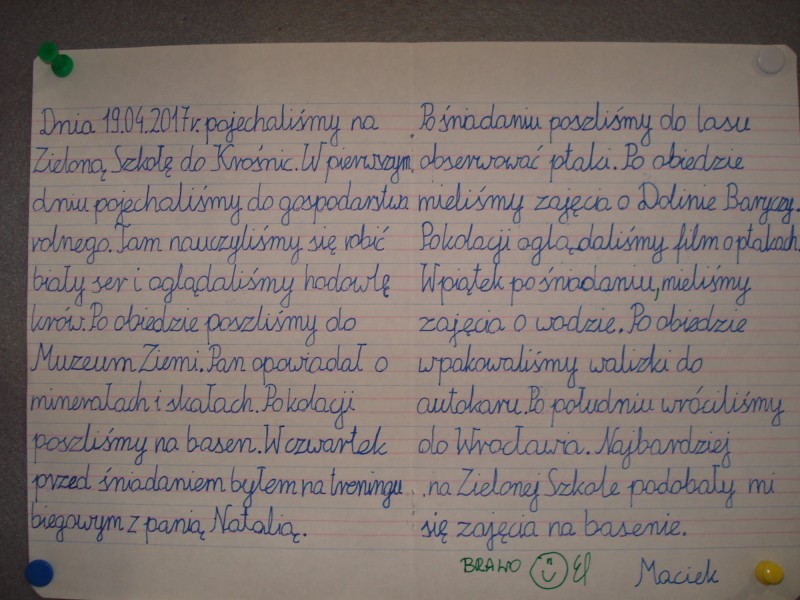 Dnia 19.04.2017r. pojechaliśmy na
Zieloną Szkołę do Krośnic. W pierwszym
dniu pojechaliśmy do gospodarstwa
rolnego. Tam nauczyliśmy się robić
biały ser i oglądaliśmy hodowlę
krów. Po obiedzie poszliśmy do
Muzeum Ziemi. Pan opowiadał o
minerałach i skałach. Po kolacji
poszliśmy na basen. W czwartek
przed śniadaniem byłem na treningu
biegowym z panią Natalią.
Po śniadaniu poszliśmy do lasu
obserwować ptaki. Po obiedzie
mieliśmy zajęcia o Dolinie Baryczy.
Po kolacji oglądaliśmy film o ptakach.
W piątek po śniadaniu, mieliśmy
zajęcia o wodzie. Po obiedzie
wpakowaliśmy walizki do
autokaru. Po południu wróciliśmy
do Wrocławia. Najbardziej
na Zielonej Szkole podobały mi
się zajęcia na basenie.
BRAWO
Maciek